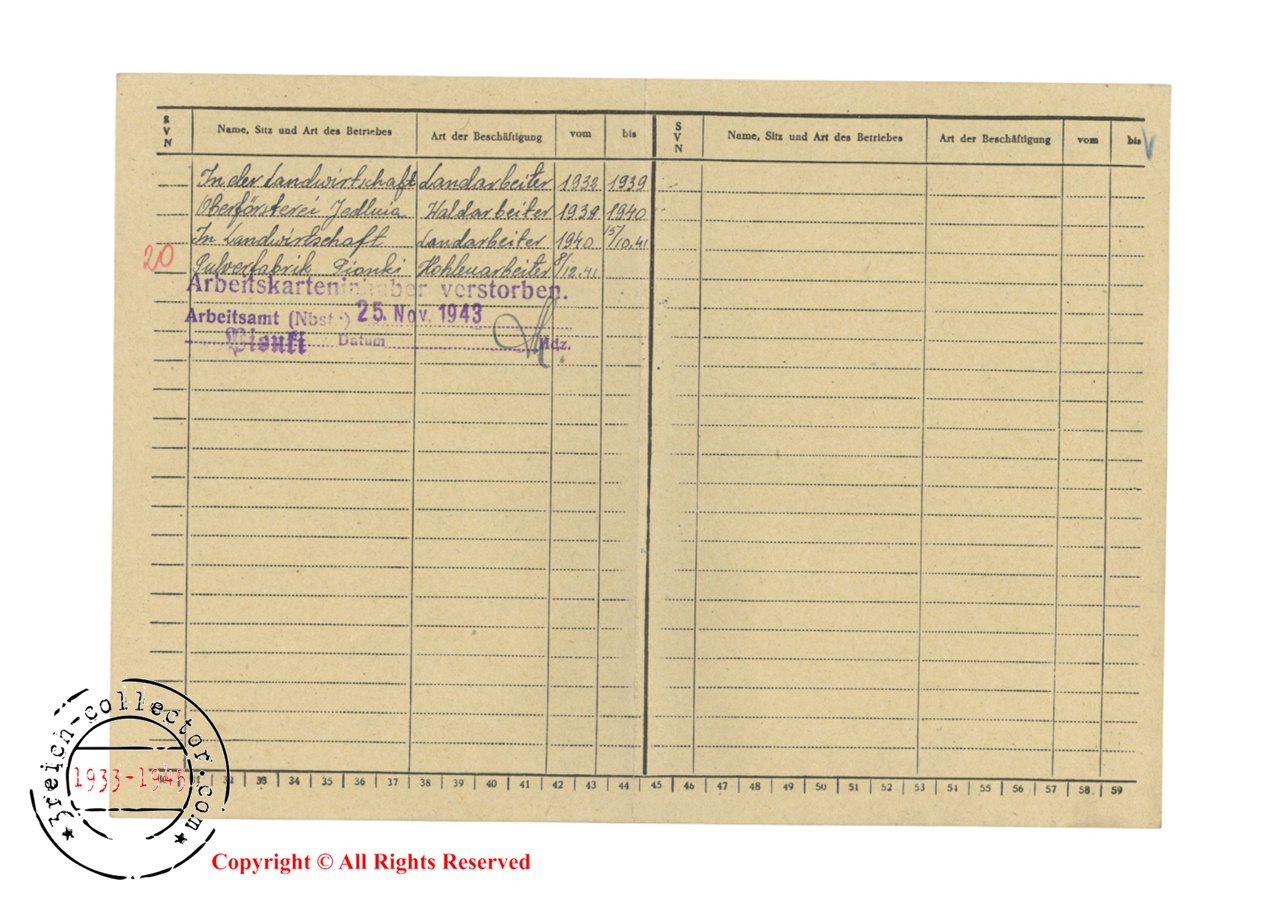 S V N Name, Sitz und Art des Betriebes Art der Beschäftigung vom bis S V N Name, Sitz und Art des Betriebes Art der Beschäftigung vom bis
In der Landwirtschaft Landarbeiter 1932 1939
Oberförsterei Jedlnia Waldarbeiter 1939 1940
In Landwirtschaft Landarbeiter 1940 15/10.41
20 Pulverfabrik Pionki Kohlenarbeiter 8/12.41
Arbeitskarteninhaber verstorben.
Arbeitsamt (Nbst.) 25. Nov. 1943
Pionki Datum Hdz.
33 34 35 36 37 38 39 40 41 42 43 44 45 46 47 48 49 50 51 52 53 54 55 56 57 58 59
3reich-collector.com
1933-1945
Copyright © All Rights Reserved